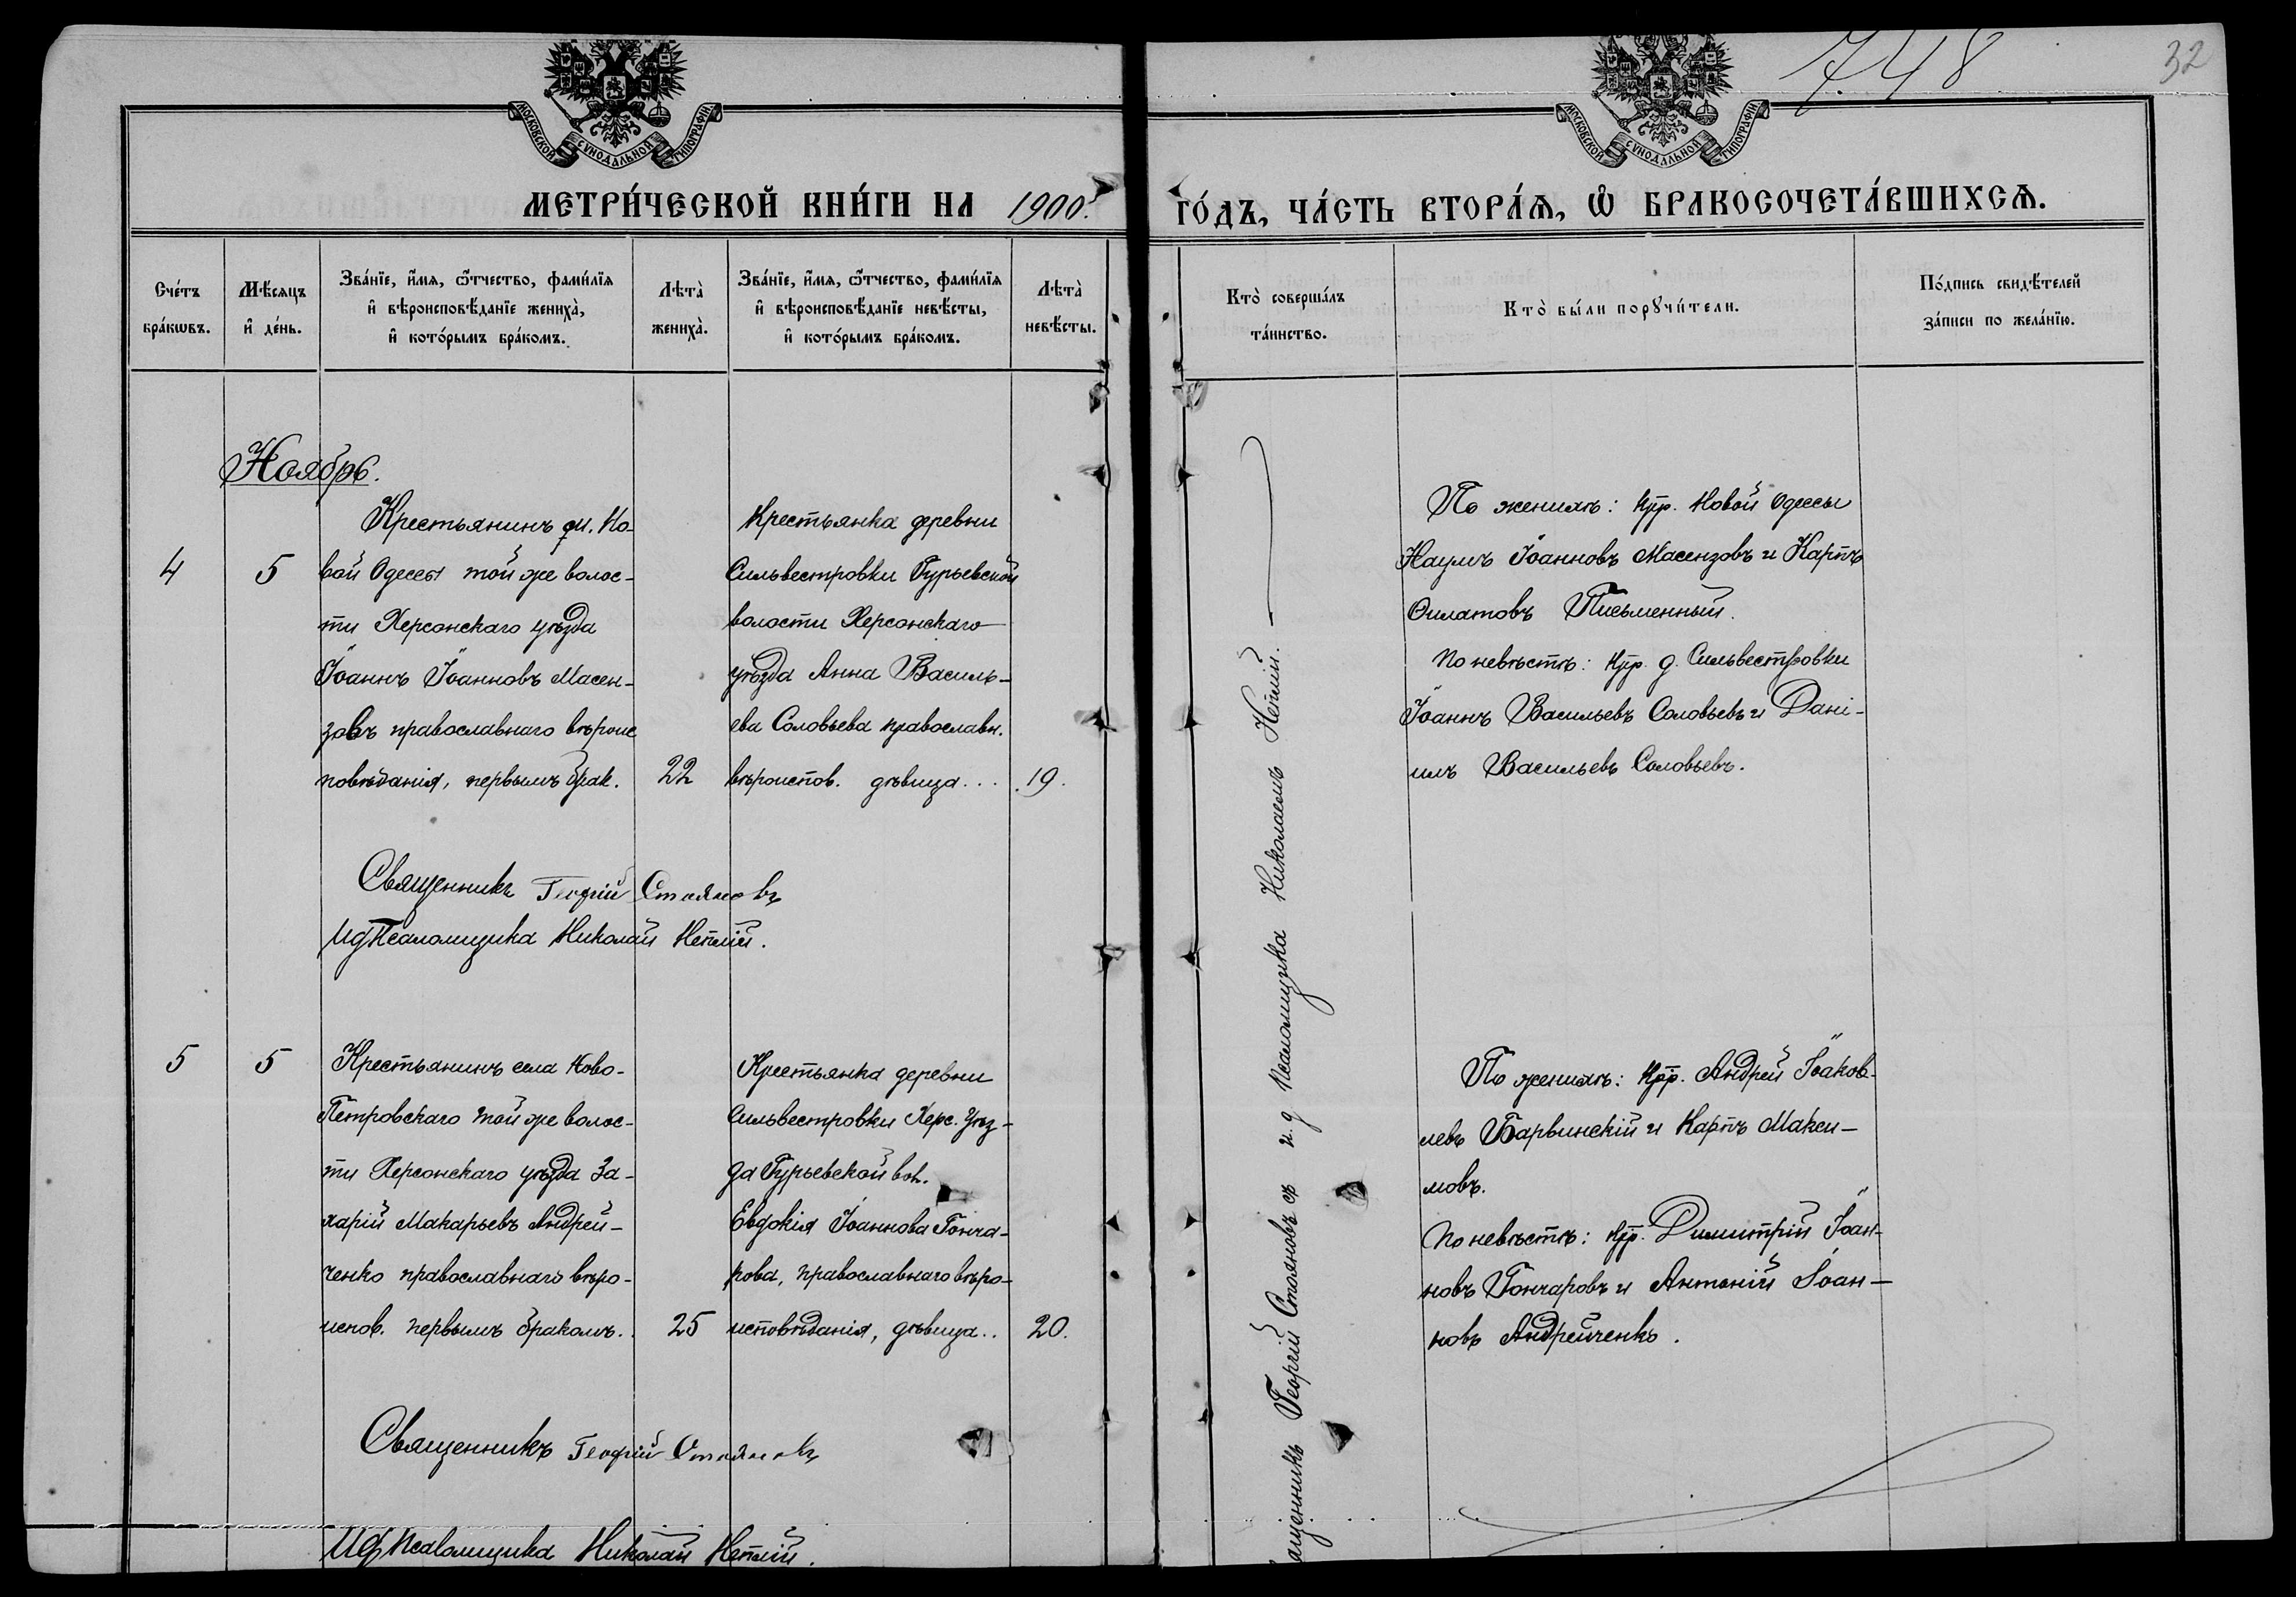 748
32
МОСКОВСКОЙ СѴНОДАЛЬНОЙ ТИПОГРАФІИ
МОСКОВСКОЙ СѴНОДАЛЬНОЙ ТИПОГРАФІИ
МЕТРИ́ЧЕСКОЙ КНИ́ГИ НА 1900 ГО́ДЪ, ЧА́СТЬ ВТОРА́Ѧ, Ѡ҆ БРАКОСОЧЕТА́ВШИХСѦ.
Сче́тъ бра́кѡвъ.
Мѣ́сяцъ и҆ де́нь.
Зва́нїе, и҆́мя, ѻ҆́тчество, фами́лїя
и҆ вѣроисповѣ́данїе жениха̀,
и҆ кото́рымъ бра́комъ.
Лѣта̀ жениха̀.
Зва́нїе, и҆́мя, ѻ҆́тчество, фами́лїя
и҆ вѣроисповѣ́данїе невѣ́сты,
и҆ кото́рымъ бра́комъ.
Лѣта̀ невѣ́сты.
Кто̀ соверша́лъ та́инство.
Кто̀ бы́ли порꙋчи́тели.
По́дпись свидѣ́телей
за́писи по жела́нїю.
Ноябрь.
4
5
Крестьянинъ м. Но-
вой Одессы той же волос-
ти Херсонскаго уѣзда
Іоаннъ Іоанновъ Масен-
зовъ православнаго вѣроис
повѣданія, первымъ брак.
22
Крестьянка деревни
Сильвестровки Гурьевской
волости Херсонскаго
уѣзда Анна Василь-
ева Соловьева православн.
вѣроиспов. дѣвица...
19.
По женихѣ: кр. Новой Одессы
Наумъ Іоанновъ Масензовъ и Карпъ
Филатовъ Письменный.
По невѣстѣ: кр. д. Сильвестровки
Іоаннъ Васильевъ Соловьевъ и Дані-
илъ Васильевъ Соловьевъ.
Священникъ Георгій Стояновъ
И д Псаломщика Николай Неплій.
5
5
Крестьянинъ села Ново-
Петровскаго той же волос-
ти Херсонскаго уѣзда За-
харій Макарьевъ Андрей-
ченко православнаго вѣро-
испов. первымъ бракомъ.
25
Крестьянка деревни
Сильвестровки Херс. уѣз-
да Гурьевской вол.
Евдокія Іоаннова Гонча-
рова, православнаго вѣро-
исповѣданія, дѣвица..
20.
По женихѣ: кр. Андрей Іаков-
левъ Барвинскій и Карпъ Макси-
мовъ.
По невѣстѣ: кр. Димитрій Іоан-
новъ Гончаровъ и Антоній Іоан-
новъ Андрейченко.
Священникъ Георгій Стояновъ съ и. д псаломщика Николаемъ Неплій.
Священникъ Георгій Стояновъ
И д Псаломщика Николай Неплій.